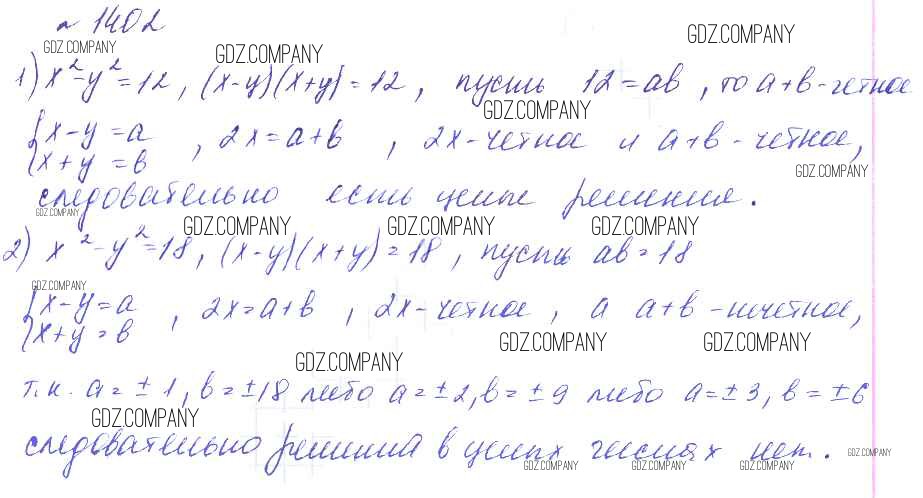 № 1402
GDZ.COMPANY
GDZ.COMPANY
GDZ.COMPANY
1) x² - y² = 12, (x-y)(x+y) = 12, пусть 12 = ab, то a+b - четное
GDZ.COMPANY
{x - y = a
{x + y = b
, 2x = a+b , 2x - четное и a+b - четное,
GDZ.COMPANY
следовательно есть целые решения.
GDZ.COMPANY
GDZ.COMPANY
GDZ.COMPANY
GDZ.COMPANY
2) x² - y² = 18, (x-y)(x+y) = 18, пусть ab = 18
GDZ.COMPANY
{x - y = a
{x + y = b
, 2x = a+b , 2x - четное, а a+b - нечетное,
GDZ.COMPANY
GDZ.COMPANY
GDZ.COMPANY
т.к. a = ± 1, b = ± 18 либо a = ± 2, b = ± 9 либо a = ± 3, b = ± 6
GDZ.COMPANY
следовательно решений в целых числах нет.
GDZ.COMPANY
GDZ.COMPANY
GDZ.COMPANY
GDZ.COMPANY